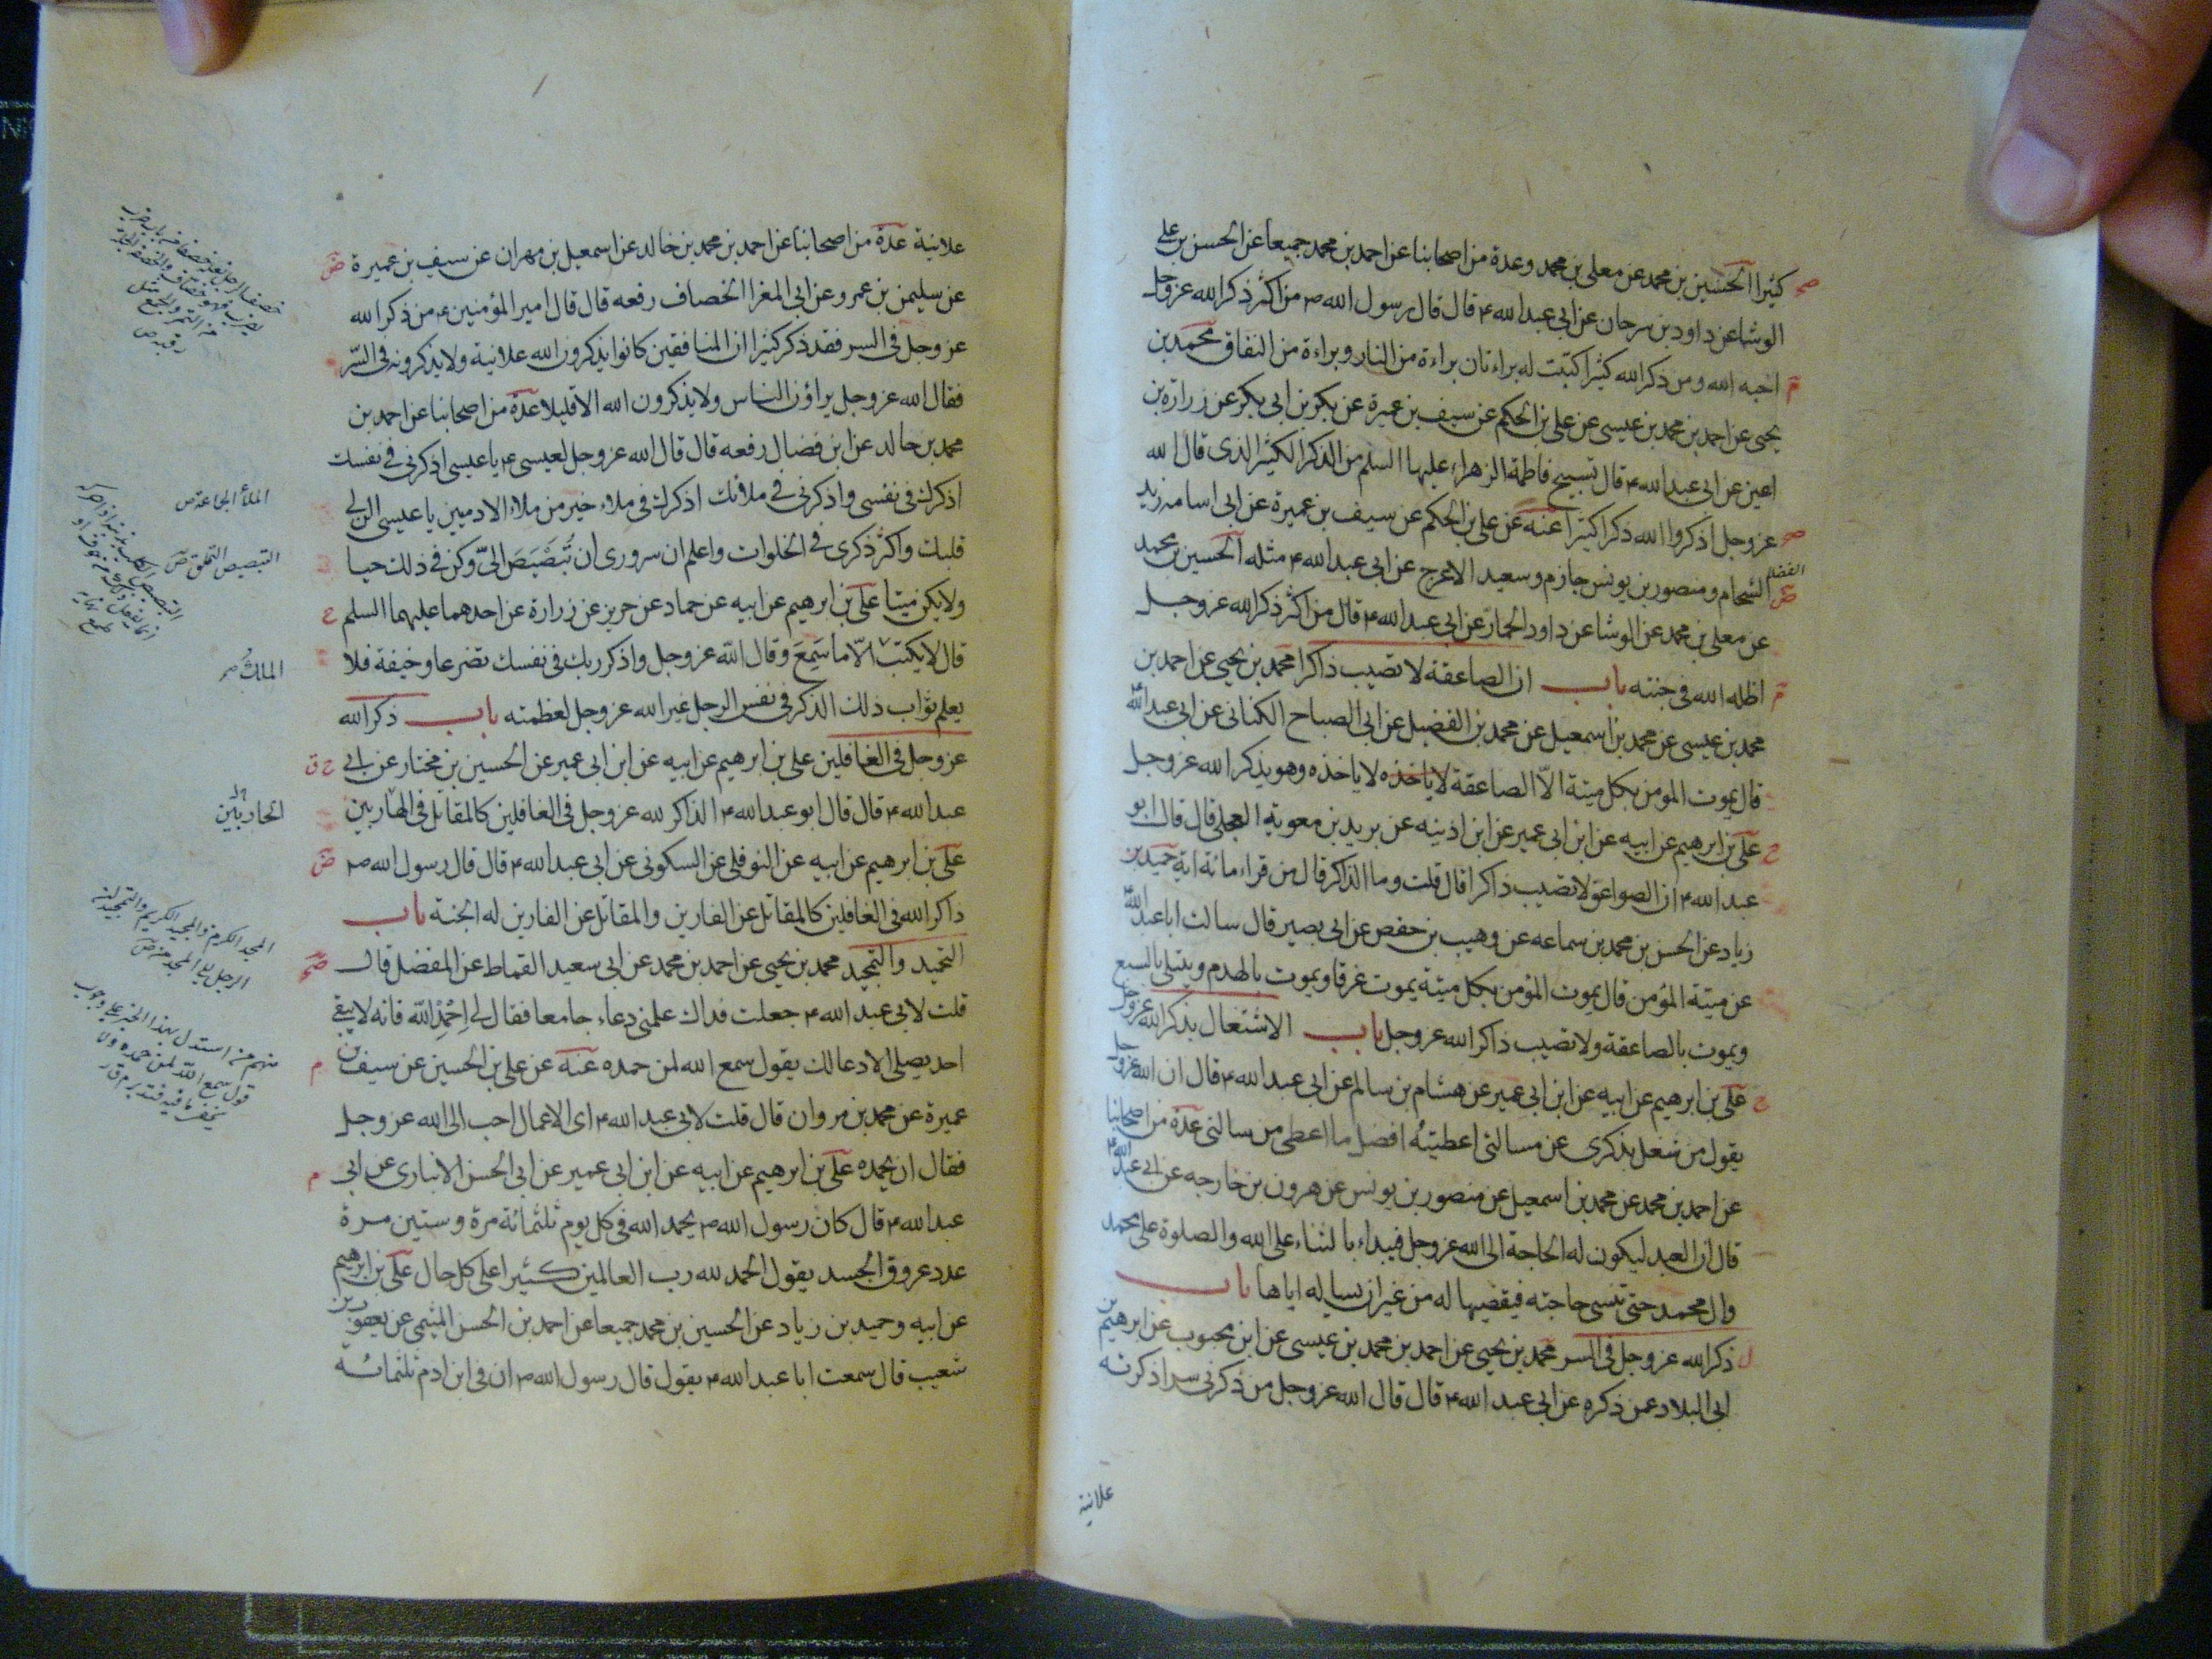 كثيرا الحسين بن محمد عن معلى بن محمد وعدة من اصحابنا عن احمد بن محمد جميعا عن الحسن بن علي
الوشا عن داود بن سرحان عن ابى عبد الله ۴ قال قال رسول الله ص من اكثر ذكر الله عز وجل
احبه الله ومن ذكر الله كثيرا كتبت له براءتان براءة من النار وبراءة من النفاق محمد بن
يحيى عن احمد بن محمد بن عيسى عن على بن الحكم عن سيف بن عميرة عن بكر بن ابى بكر عن زرارة بن
اعين عن ابى عبد الله ۴ قال تسبيح فاطمة الزهراء عليها السلم من الذكر الكثير الذى قال الله
عز وجل اذكروا الله ذكرا كثيرا عنه عن على بن الحكم عن سيف بن عميرة عن ابى اسامه زيد
الشحام ومنصور بن يونس حازم وسعيد الاعرج عن ابى عبد الله ۴ مثله الحسين بن محمد
عن معلى بن محمد عن الوشا عن داود الحمار عن ابى عبد الله ۴ قال من اكثر ذكر الله عز وجل
اظله الله فى جنته باب ان الصاعقة لا تصيب ذاكرا محمد بن يحيى عن احمد بن
محمد بن عيسى عن محمد بن اسمعيل عن محمد بن الفضيل عن ابى الصباح الكنانى عن ابى عبد الله ۴
قال يموت المومن بكل ميتة الّا الصاعقة لا ياخذه لا ياخذه وهو يذكر الله عز وجل
على بن ابرهيم عن ابيه عن ابن ابى عمير عن ابن اذينه عن بريد بن معوية العجلى قال قال ابو
عبد الله ۴ ان الصواعق لا تصيب ذاكرا قال قلت وما الذاكر قال من قراء مائة اية حميد بن
زياد عن الحسن بن محمد بن سماعه عن وهيب بن حفص عن ابى بصير قال سالت ابا عبد الله ۴
عن ميتة المؤمن قال يموت المؤمن بكل ميتة يموت غرقا ويموت بالهدم ويبتلى بالسبع
ويموت بالصاعقة ولا تصيب ذاكر الله عز وجل باب الاشتغال بذكر الله عز وجل
على بن ابرهيم عن ابيه عن ابن ابى عمير عن هشام بن سالم عن ابى عبد الله ۴ قال ان الله عز وجل
يقول من شغل بذكرى عن مسالتى اعطيته افضل ما اعطى من سالنى عدة من اصحابنا
عن احمد بن محمد عن محمد بن اسمعيل عن منصور بن يونس عن هرون بن خارجه عن ابى عبد الله ۴
قال ان العبد ليكون له الحاجة الى الله عز وجل فيبداء بالثناء على الله والصلوة على محمد
وال محمد حتى تنسى حاجته فيقضيها له من غير ان يساله اياها باب
ذكر الله عز وجل فى السر محمد بن يحيى عن احمد بن محمد بن عيسى عن ابن محبوب عن ابرهيم بن
ابى البلاد عمن ذكره عن ابى عبد الله ۴ قال قال الله عز وجل من ذكرنى سرا ذكرته
علانية
علانية عدة من اصحابنا عن احمد بن محمد بن خالد عن اسمعيل بن مهران عن سيف بن عميرة
عن سليمن بن عمرو عن ابى المغرا الخصاف رفعه قال قال امير المؤمنين ۴ من ذكر الله
عز وجل فى السر فقد ذكر كثيرا ان المنافقين كانوا يذكرون الله علانية ولا يذكرونه فى السّر
فقال الله عز وجل يراؤن الناس ولا يذكرون الله الا قليلا عدة من اصحابنا عن احمد بن
محمد بن خالد عن ابن فضال رفعه قال قال الله عز وجل لعيسى ۴ يا عيسى اذكرنى فى نفسك
اذكرك فى نفسى واذكرنى فى ملائك اذكرك فى ملاء خير من ملاء الادميين يا عيسى الن لى
قلبك واكثر ذكرى فى الخلوات واعلم ان سرورى ان تُبَصْبَصَ الىّ وكن فى ذلك حيا
ولا يكن ميتا على بن ابرهيم عن ابيه عن حماد عن حريز عن زرارة عن احدهما عليهما السلم
قال لا يكتب الّا ما سَمِعَ وقال الله عز وجل واذكر ربك فى نفسك تضرعا وخيفة فلا
يعلم ثواب ذلك الذكر فى نفس الرجل غير الله عز وجل لعظمته باب ذكر الله
عز وجل فى الغافلين على بن ابرهيم عن ابيه عن ابن ابى عمير عن الحسين بن مختار عن ابى
عبد الله ۴ قال قال ابو عبد الله ۴ الذاكر لله عز وجل فى الغافلين كالمقاتل فى الهاربين
على بن ابرهيم عن ابيه عن النوفلى عن السكونى عن ابى عبد الله ۴ قال قال رسول الله ص
ذاكر الله فى الغافلين كالمقاتل عن الفارين والمقاتل عن الفارين له الجنة باب
التحميد والتمجيد محمد بن يحيى عن احمد بن محمد عن ابى سعيد القماط عن المفضل قال
قلت لابى عبد الله ۴ جعلت فداك علمنى دعاء جامعا فقال لى اِحْمَدِ الله فانه لا يبقى
احد يصلى الا دعا لك يقول سمع الله لمن حمده عنه عن على بن الحسين عن سيف بن
عميرة عن محمد بن مروان قال قلت لابى عبد الله ۴ اى الاعمال احب الى الله عز وجل
فقال ان يحمده على بن ابرهيم عن ابيه عن ابن ابى عمير عن ابى الحسن الانبارى عن ابى
عبد الله ۴ قال كان رسول الله ص يحمد الله فى كل يوم ثلثمائة مرة وستين مرة
عدد عروق الجسد يقول الحمد لله رب العالمين كثيرا على كل حال على بن ابرهيم
عن ابيه وحميد بن زياد عن الحسين بن محمد جميعا عن احمد بن الحسن الميثمى عن يعقوب بن
شعيب قال سمعت ابا عبد الله ۴ يقول قال رسول الله ص ان فى ابن ادم ثلثمائة
الملأ الجماعة ص
التبصيص التملق ص
الملك